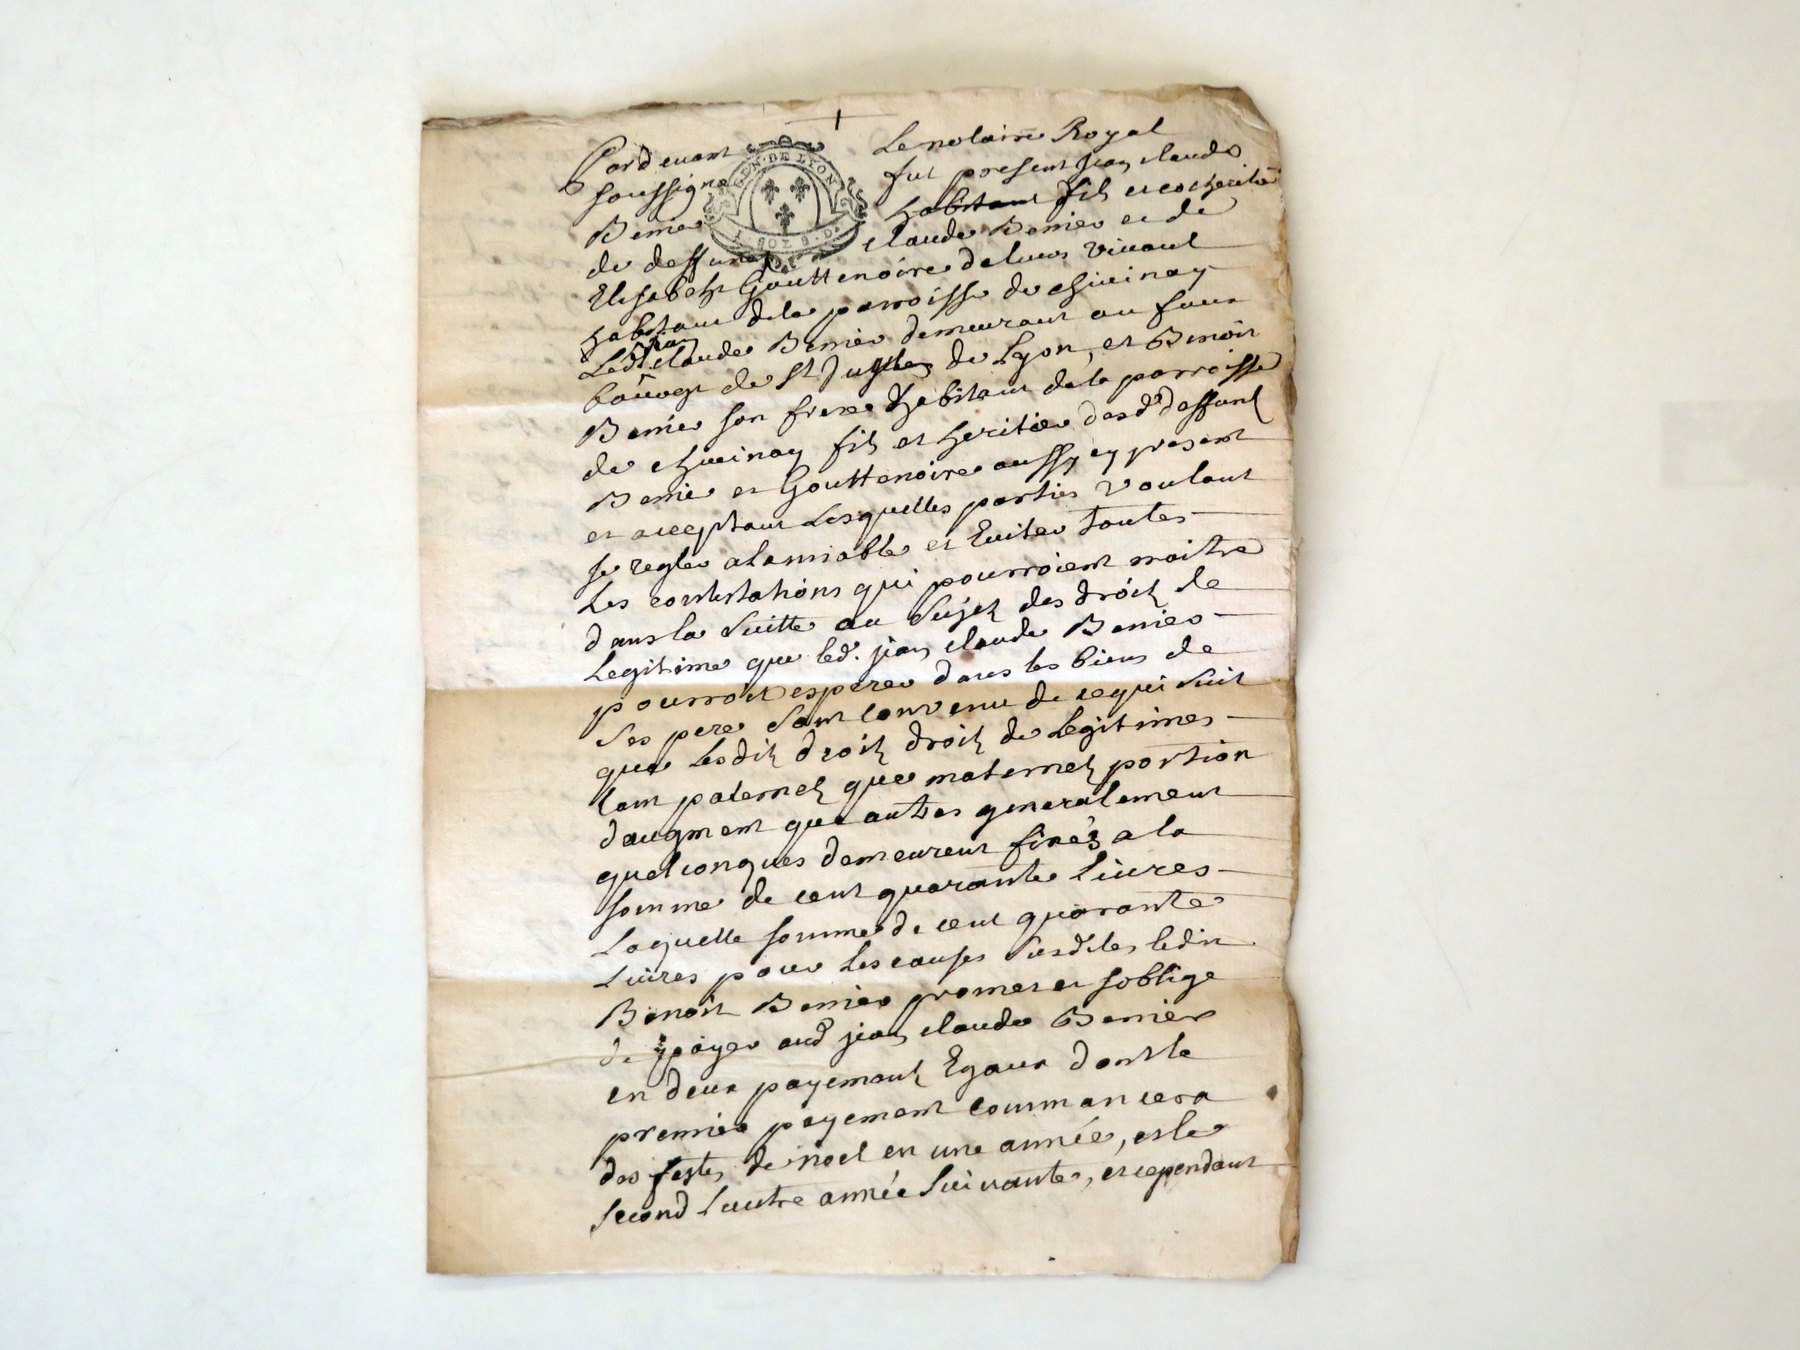 Pardevant Le notaire Royal
soussigné fut present Jean claude
GEN. DE LYON
1. SOL 8. D.
Benier habitant fils et coheritier
de deffunt claude Benier et de
Elisabeth Gouttenoire de leurs vivant
habitant de la parroisse de chivinay
Led. Jean claude Benier demeurant au faux
bourg de St Just de Lyon, et Benoit
Benier son frere habitant de la parroisse
de chivinay fils et heritier desd. deffunts
Benier et Gouttenoire aussy cy present
et acceptant Lesquelles parties Voulant
se regler alamiable et Eviter toutes
Les contestations qui pourroient naitre
dans la suitte au sujet des droits de
Legitime que led. jean claude Benier
pourroit esperer dans les biens de
ses pere sont convenu de ce qui suit
que Lesdits droits droits de Legitimes
tant paternels que maternels portion
daugment que autres generalement
quelconques demeurent fixés a la
somme de cent quarante Livres
Laquelle somme de cent quarante
Livres pour Les causes susdites ledit
Benoit Benier promet et soblige
de payer aud. jean claude Benier
en deux payements Egaux dont le
premier payement commancera
des festes de noel en une année, et le
second Lautre année suivante, et cependant